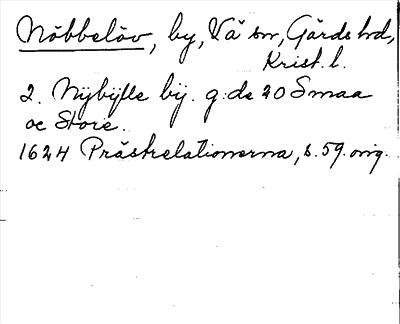 Nöbbelöv, by, Vä sn, Gärds hd,
Krist. l.
2. Nÿbÿlle bÿ. g: de 20 Smaa
oc Store.
1624 Prästrelationerna, s. 59. orig.